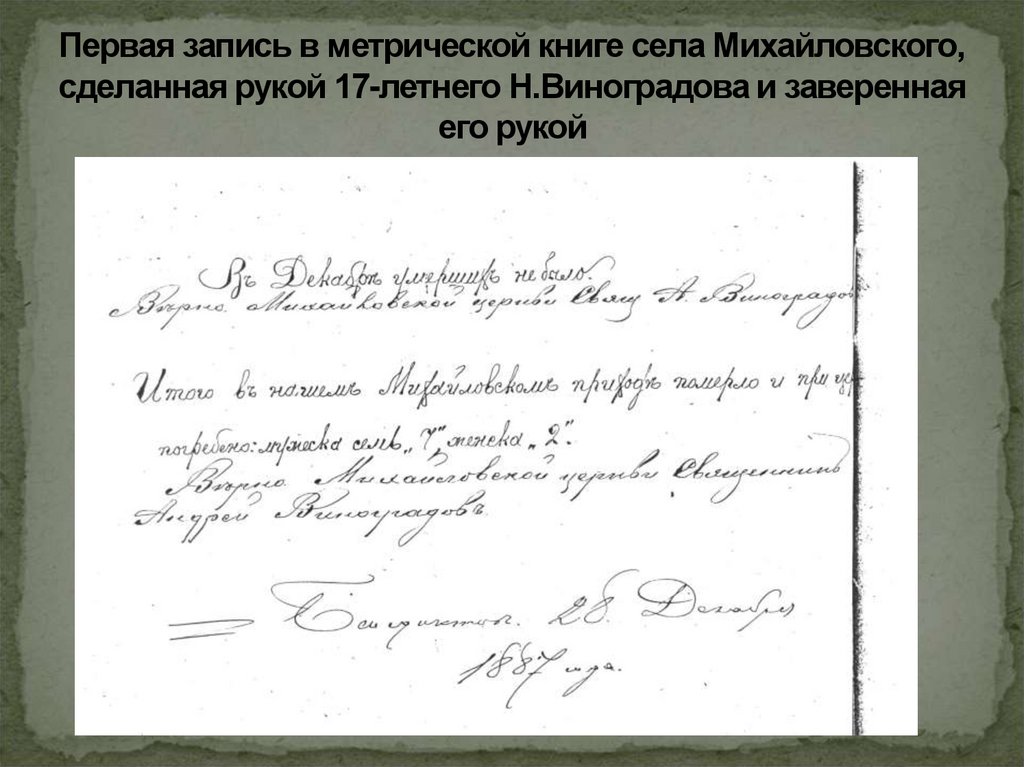 Первая запись в метрической книге села Михайловского,
сделанная рукой 17-летнего Н.Виноградова и заверенная
его рукой
Въ Декабрѣ умершихъ не было.
Вѣрно. Михайловской церкви Свящ А. Виноградов
Итого въ нашемъ Михайловскомъ приходѣ померло и при цер
погребено: мужеска семь „7", женска „2".
Вѣрно. Михайловской церкви Священникъ
Андрей Виноградовъ.
28 Декабря
1887 года.